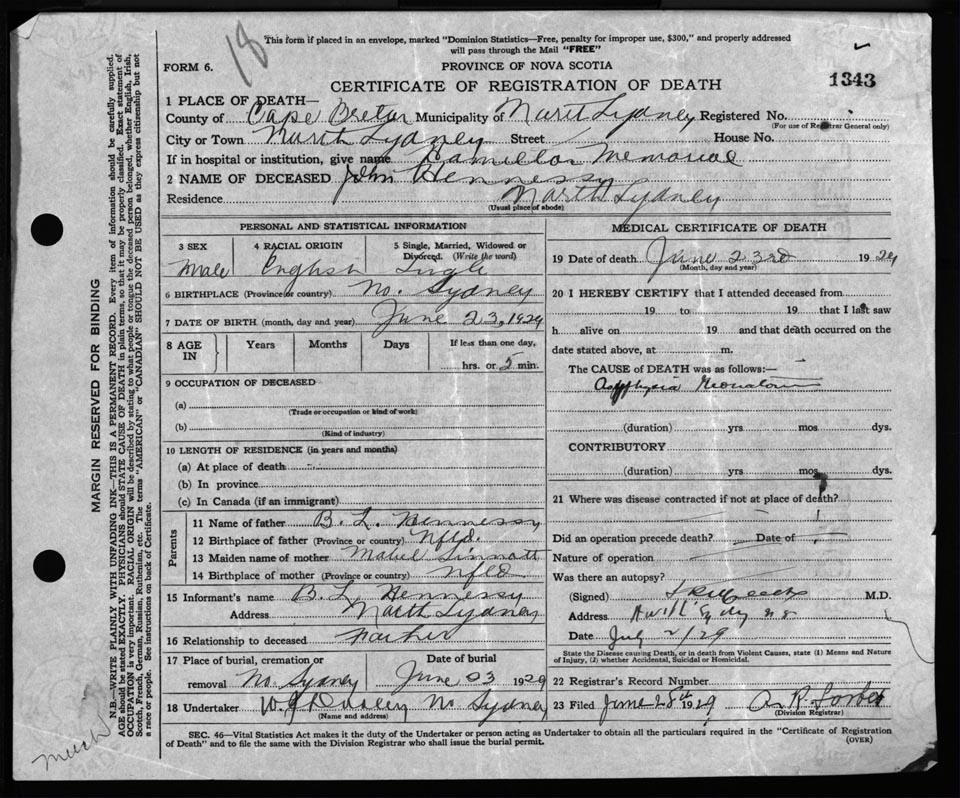 18
This form if placed in an envelope, marked "Dominion Statistics—Free, penalty for improper use, $300," and properly addressed
will pass through the Mail "FREE"
FORM 6.
PROVINCE OF NOVA SCOTIA
CERTIFICATE OF REGISTRATION OF DEATH
1343
1 PLACE OF DEATH—
County of Cape Breton Municipality of North Sydney Registered No.
(For use of Registrar General only)
City or Town North Sydney Street House No.
If in hospital or institution, give name Hamilton Memorial
2 NAME OF DECEASED John Hennessy
Residence North Sydney
(Usual place of abode)
PERSONAL AND STATISTICAL INFORMATION
3 SEX 4 RACIAL ORIGIN 5 Single, Married, Widowed or
Divorced. (Write the word)
Male English Single
6 BIRTHPLACE (Province or country) No. Sydney
7 DATE OF BIRTH (month, day and year) June 23, 1929
8 AGE IN Years Months Days If less than one day,
hrs. or 5 min.
9 OCCUPATION OF DECEASED
(a)
(Trade or occupation or kind of work)
(b)
(Kind of industry)
10 LENGTH OF RESIDENCE (in years and months)
(a) At place of death
(b) In province
(c) In Canada (if an immigrant)
Parents
11 Name of father B. L. Hennessy
12 Birthplace of father (Province or country) Nfld.
13 Maiden name of mother Mabel Sinnott
14 Birthplace of mother (Province or country) Nfld
15 Informant's name B. L. Hennessy
Address North Sydney
16 Relationship to deceased Father
17 Place of burial, cremation or Date of burial
removal No. Sydney June 23 1929
18 Undertaker No. Sydney
(Name and address)
MEDICAL CERTIFICATE OF DEATH
19 Date of death June 23rd 1929
(Month, day and year)
20 I HEREBY CERTIFY that I attended deceased from
19 to 19 that I last saw
h alive on 19 and that death occurred on
date stated above, at m.
The CAUSE of DEATH was as follows:—
Asphyxia Neonatorum
(duration) yrs mos dys.
CONTRIBUTORY
(duration) yrs mos dys.
21 Where was disease contracted if not at place of death?
Did an operation precede death? Date of
Nature of operation
Was there an autopsy?
(Signed) M.D.
Address North Sydney N S
Date July 2/29
State the Disease causing Death, or in death from Violent Causes, state (1) Means and Nature
of Injury, (2) whether Accidental, Suicidal or Homicidal.
22 Registrar's Record Number
23 Filed June 28th 1929 A. R. Forbes
(Division Registrar)
SEC. 46—Vital Statistics Act makes it the duty of the Undertaker or person acting as Undertaker to obtain all the particulars required in the "Certificate of Registration
of Death" and to file the same with the Division Registrar who shall issue the burial permit.
(OVER)
MARGIN RESERVED FOR BINDING
N.B.—WRITE PLAINLY WITH UNFADING INK—THIS IS A PERMANENT RECORD. Every item of information should be carefully supplied.
AGE should be stated EXACTLY. PHYSICIANS should STATE CAUSE OF DEATH in plain terms, so that it may be properly classified. Exact statement of
OCCUPATION is very important. RACIAL ORIGIN will be described by stating to what people or tongue the deceased person belonged, whether English, Irish,
Scotch, French, German, Russian, Ruthenian, etc. The terms "AMERICAN" or "CANADIAN" SHOULD NOT BE USED as they express citizenship but not
a race or people. See instructions on back of Certificate.